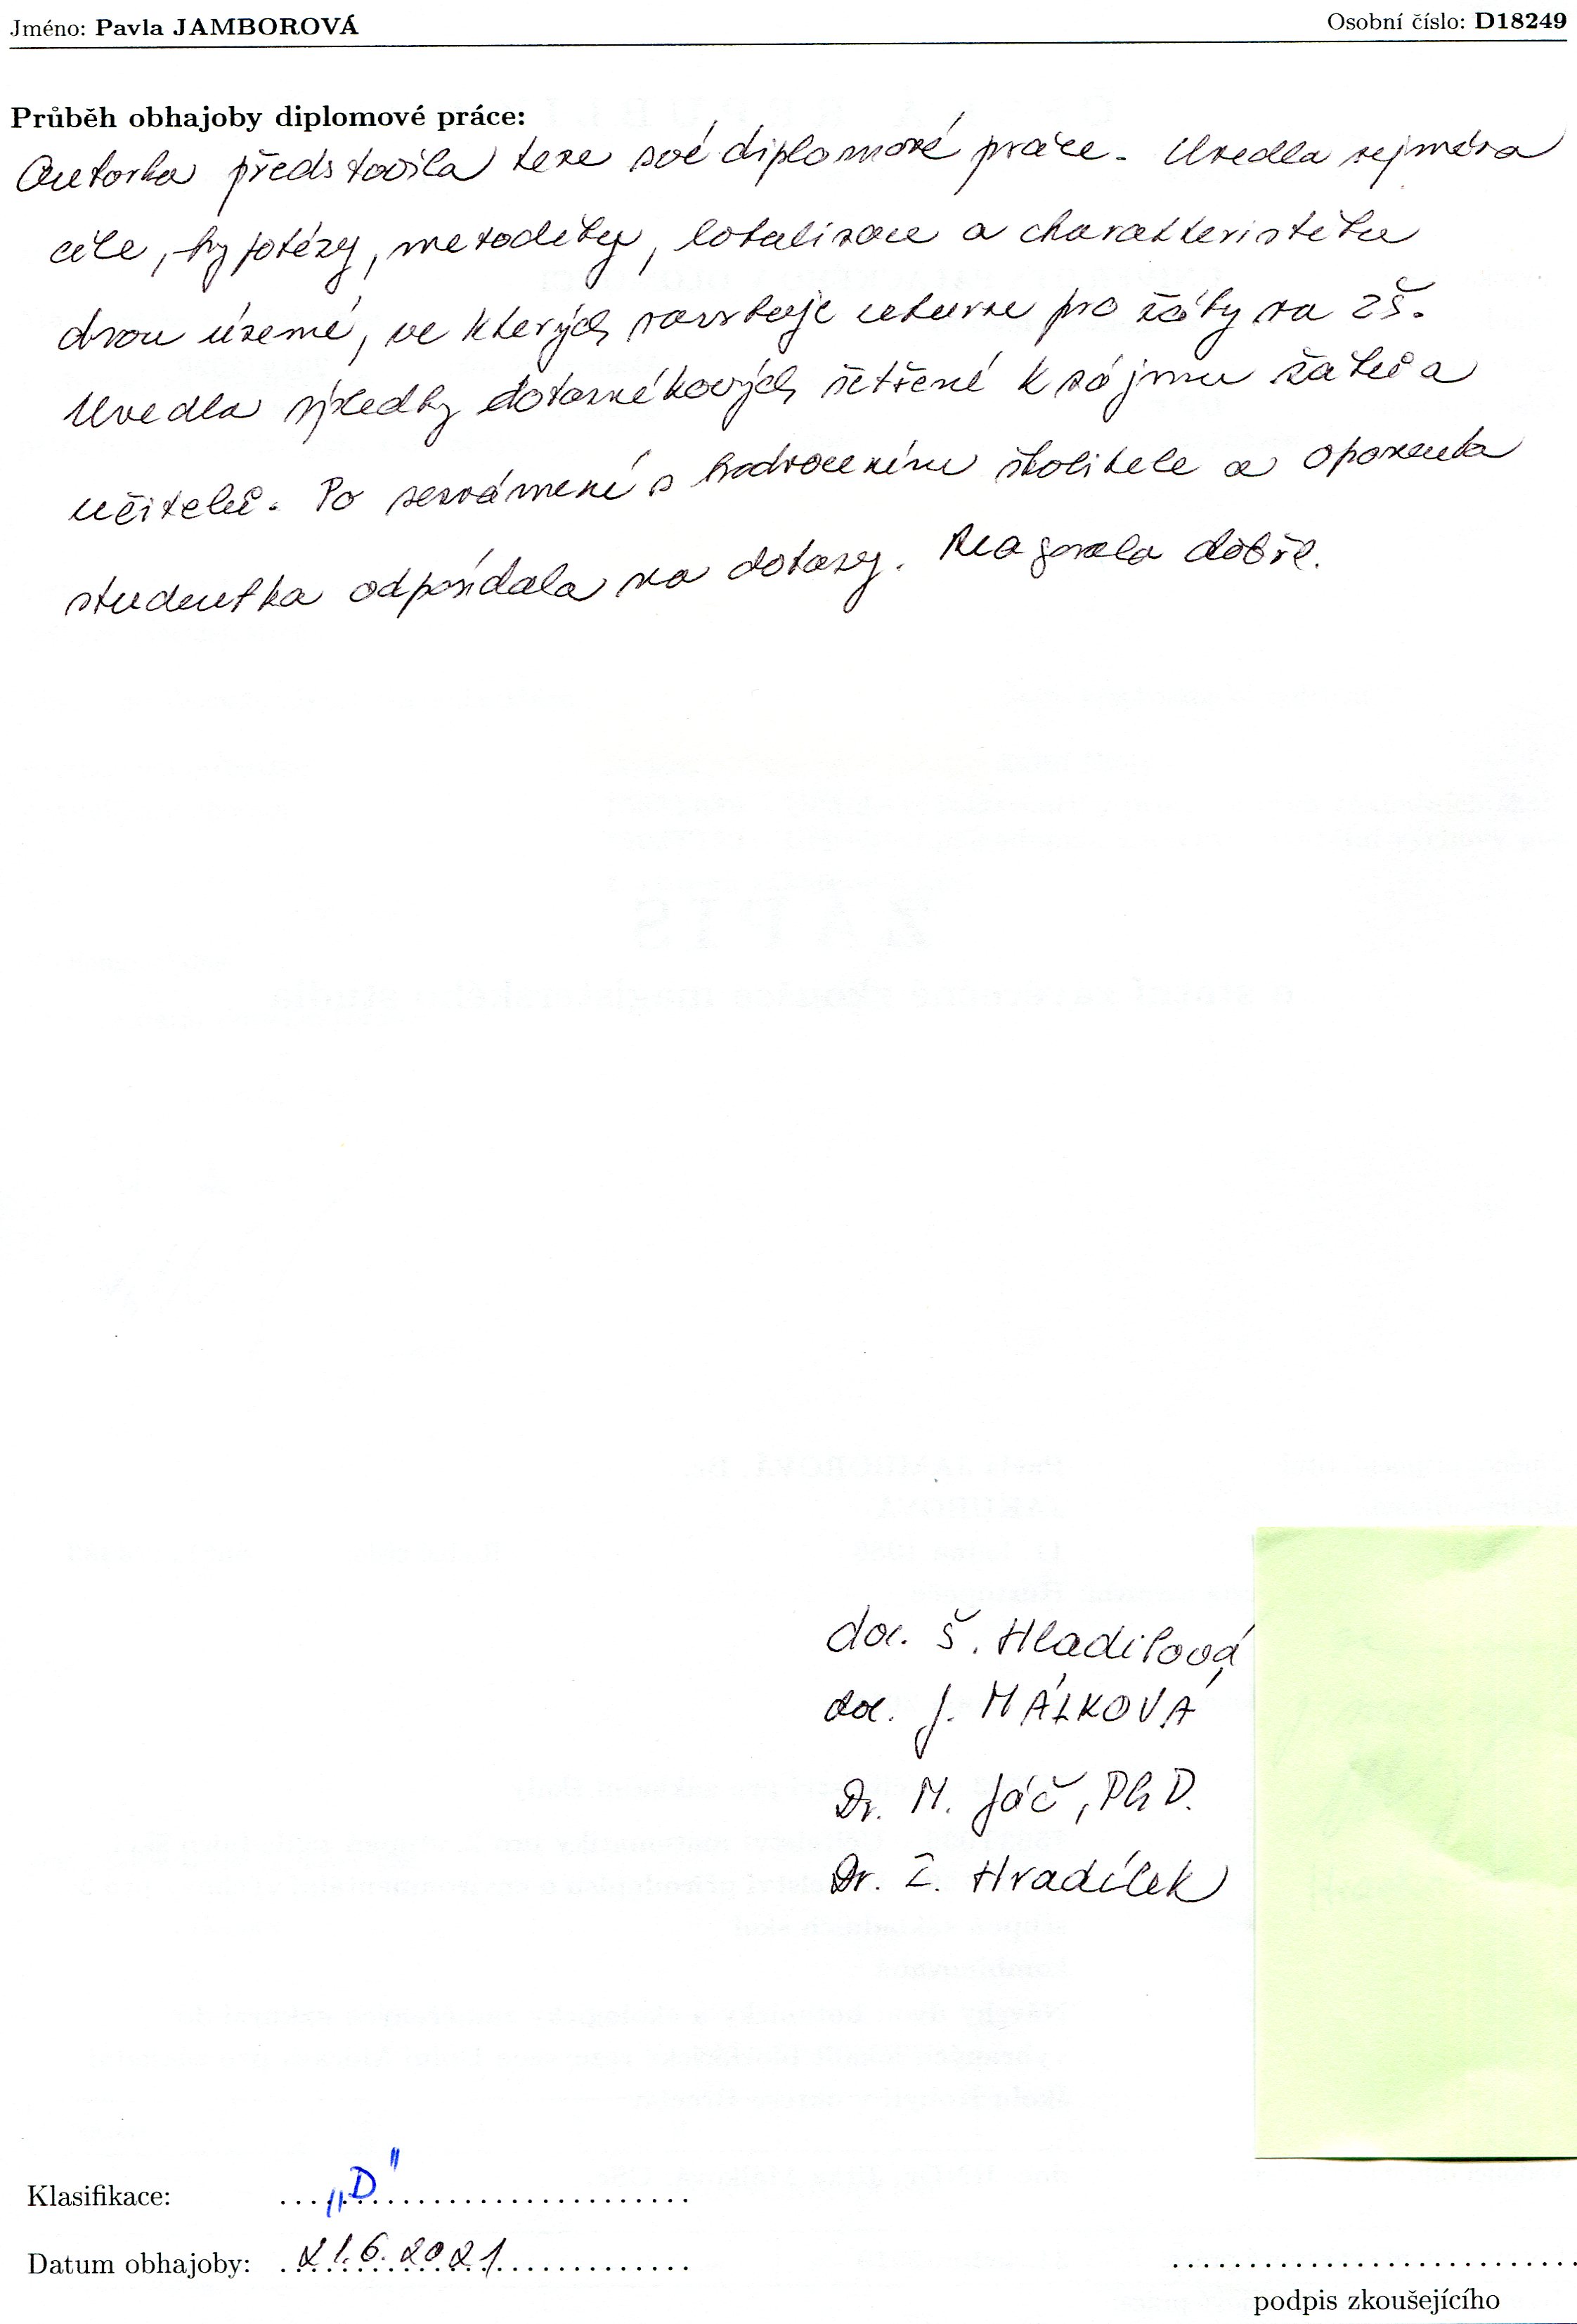 Jméno: Pavla JAMBOROVÁ Osobní číslo: D18249
Průběh obhajoby diplomové práce:
Autorka představila teze své diplomové práce. Uvedla zejména
cíle, hypotézy, metodiky, lokalizace a charakteristiku
dvou území, ve kterých navrhuje exkurze pro žáky na ZŠ.
Uvedla výsledky dotazníkových šetření k zájmu žáků a
učitelů. Po seznámení s hodnocením školitele a oponenta
studentka odpovídala na dotazy. Reagovala dobře.
doc. Š. Hladilová
doc. J. MÁLKOVÁ
Dr. M. Jáč, PhD.
Dr. Hradílek
Klasifikace: „D"
Datum obhajoby: 21.6.2021
podpis zkoušejícího